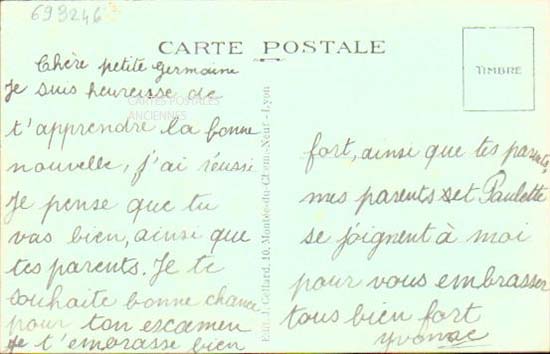 693246
CARTE POSTALE
TIMBRE
CARTES POSTALES
ANCIENNES
Chère petite Germaine
Je suis heureuse de
t'apprendre la bonne
nouvelle, j'ai réussie
Je pense que tu
vas bien, ainsi que
tes parents. Je te
souhaite bonne chance
pour ton escamen
Je t'embrasse bien
Edit. J. Cellard, 10, Montée du Chem.-Neuf - Lyon
fort, ainsi que tes parents,
mes parents et Paulette
se joignent à moi
pour vous embrasser
tous bien fort